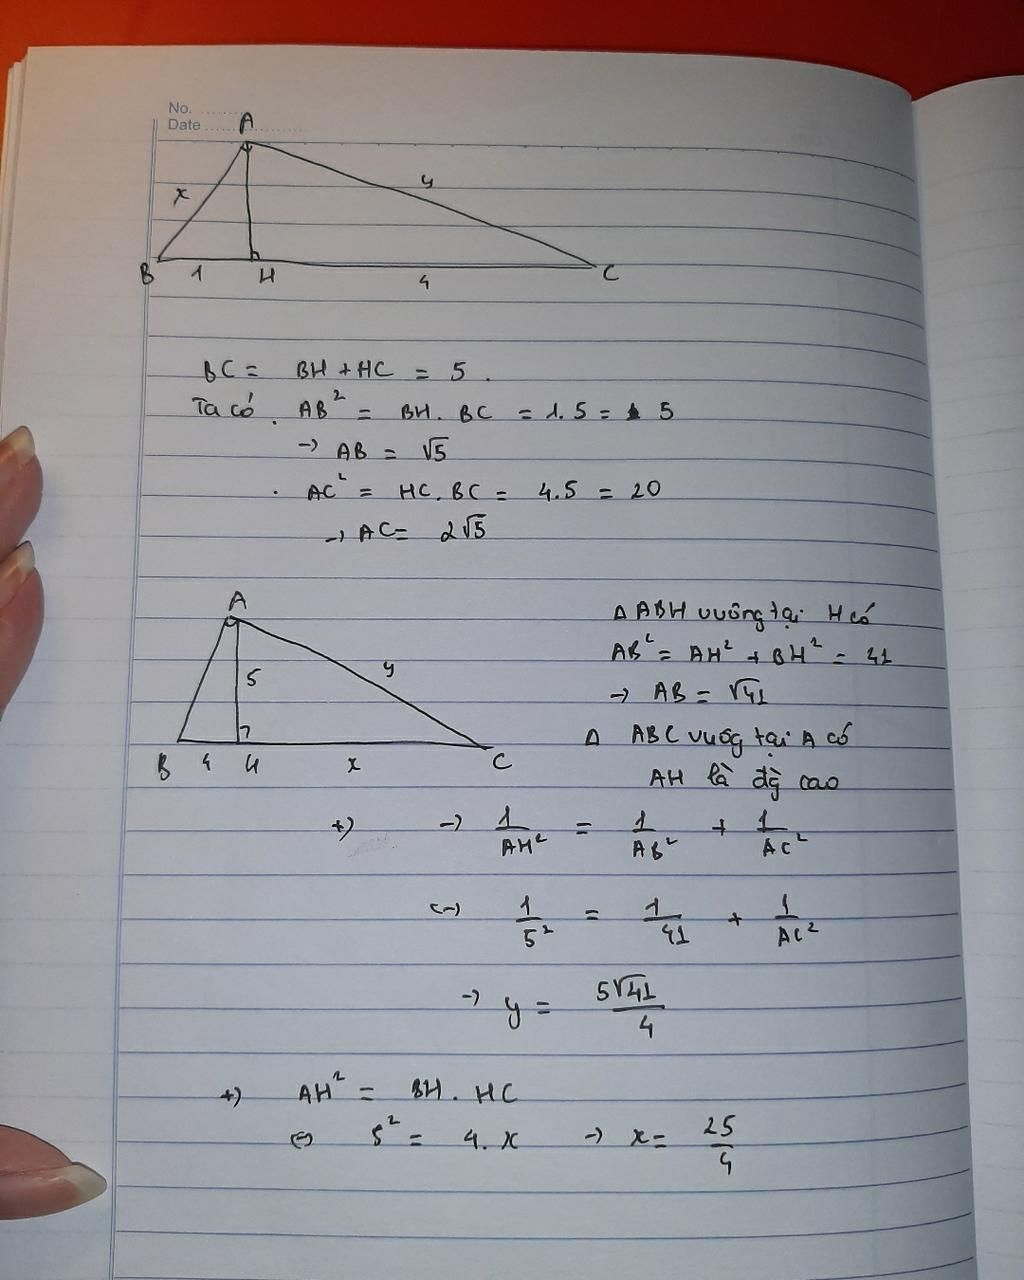 No. ........
Date ........................
A
x
y
B 1 H 4 C
BC = BH + HC = 5 .
Ta có . AB² = BH . BC = 1.5 = 5
→ AB = √5
. AC² = HC. BC = 4.5 = 20
→ AC = 2√5
A
5
y
B 4 H x C
Δ ABH vuông tại H có
AB² = AH² + BH² = 41
→ AB = √41
Δ ABC vuôg tại A có
AH là đg̀ cao
+) → 1/AH² = 1/AB² + 1/AC²
(→) 1/5² = 1/41 + 1/AC²
→ y = 5√41/4
+) AH² = BH . HC
⇔ 5² = 4. x → x = 25/4